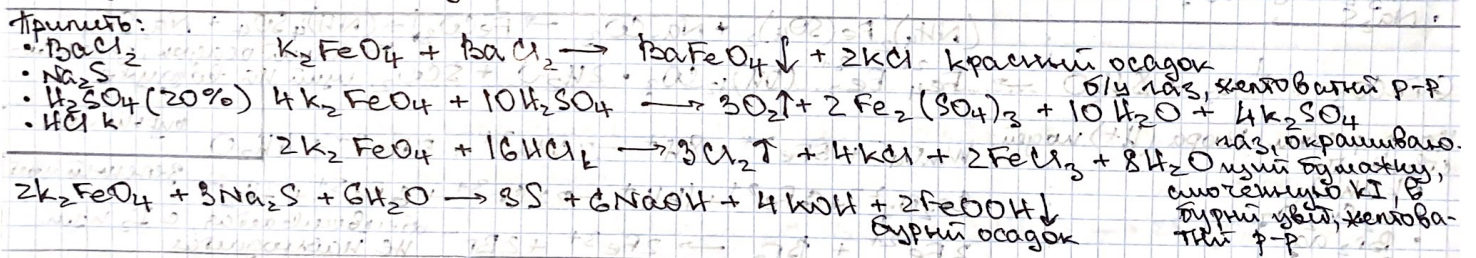 Прилить:
• BaCl₂
• Na₂S
• H₂SO₄ (20%)
• HCl к
K₂FeO₄ + BaCl₂ → BaFeO₄↓ + 2KCl красный осадок
б/ц газ, желтоватый р-р
4K₂FeO₄ + 10H₂SO₄ → 3O₂↑ + 2Fe₂(SO₄)₃ + 10H₂O + 4K₂SO₄
2K₂FeO₄ + 16HClк → 3Cl₂↑ + 4KCl + 2FeCl₃ + 8H₂O
газ, окрашиваю-
щий бумажку,
смоченную KI, в
бурый цвет, желтова-
тый р-р
2K₂FeO₄ + 3Na₂S + 6H₂O → 3S + 6NaOH + 4KOH + 2FeOOH↓
бурый осадок